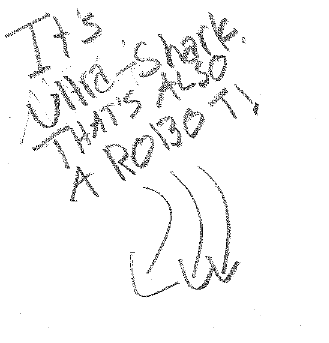 It's
Ultra-Shark.
THAT'S ALSO
A ROBOT!